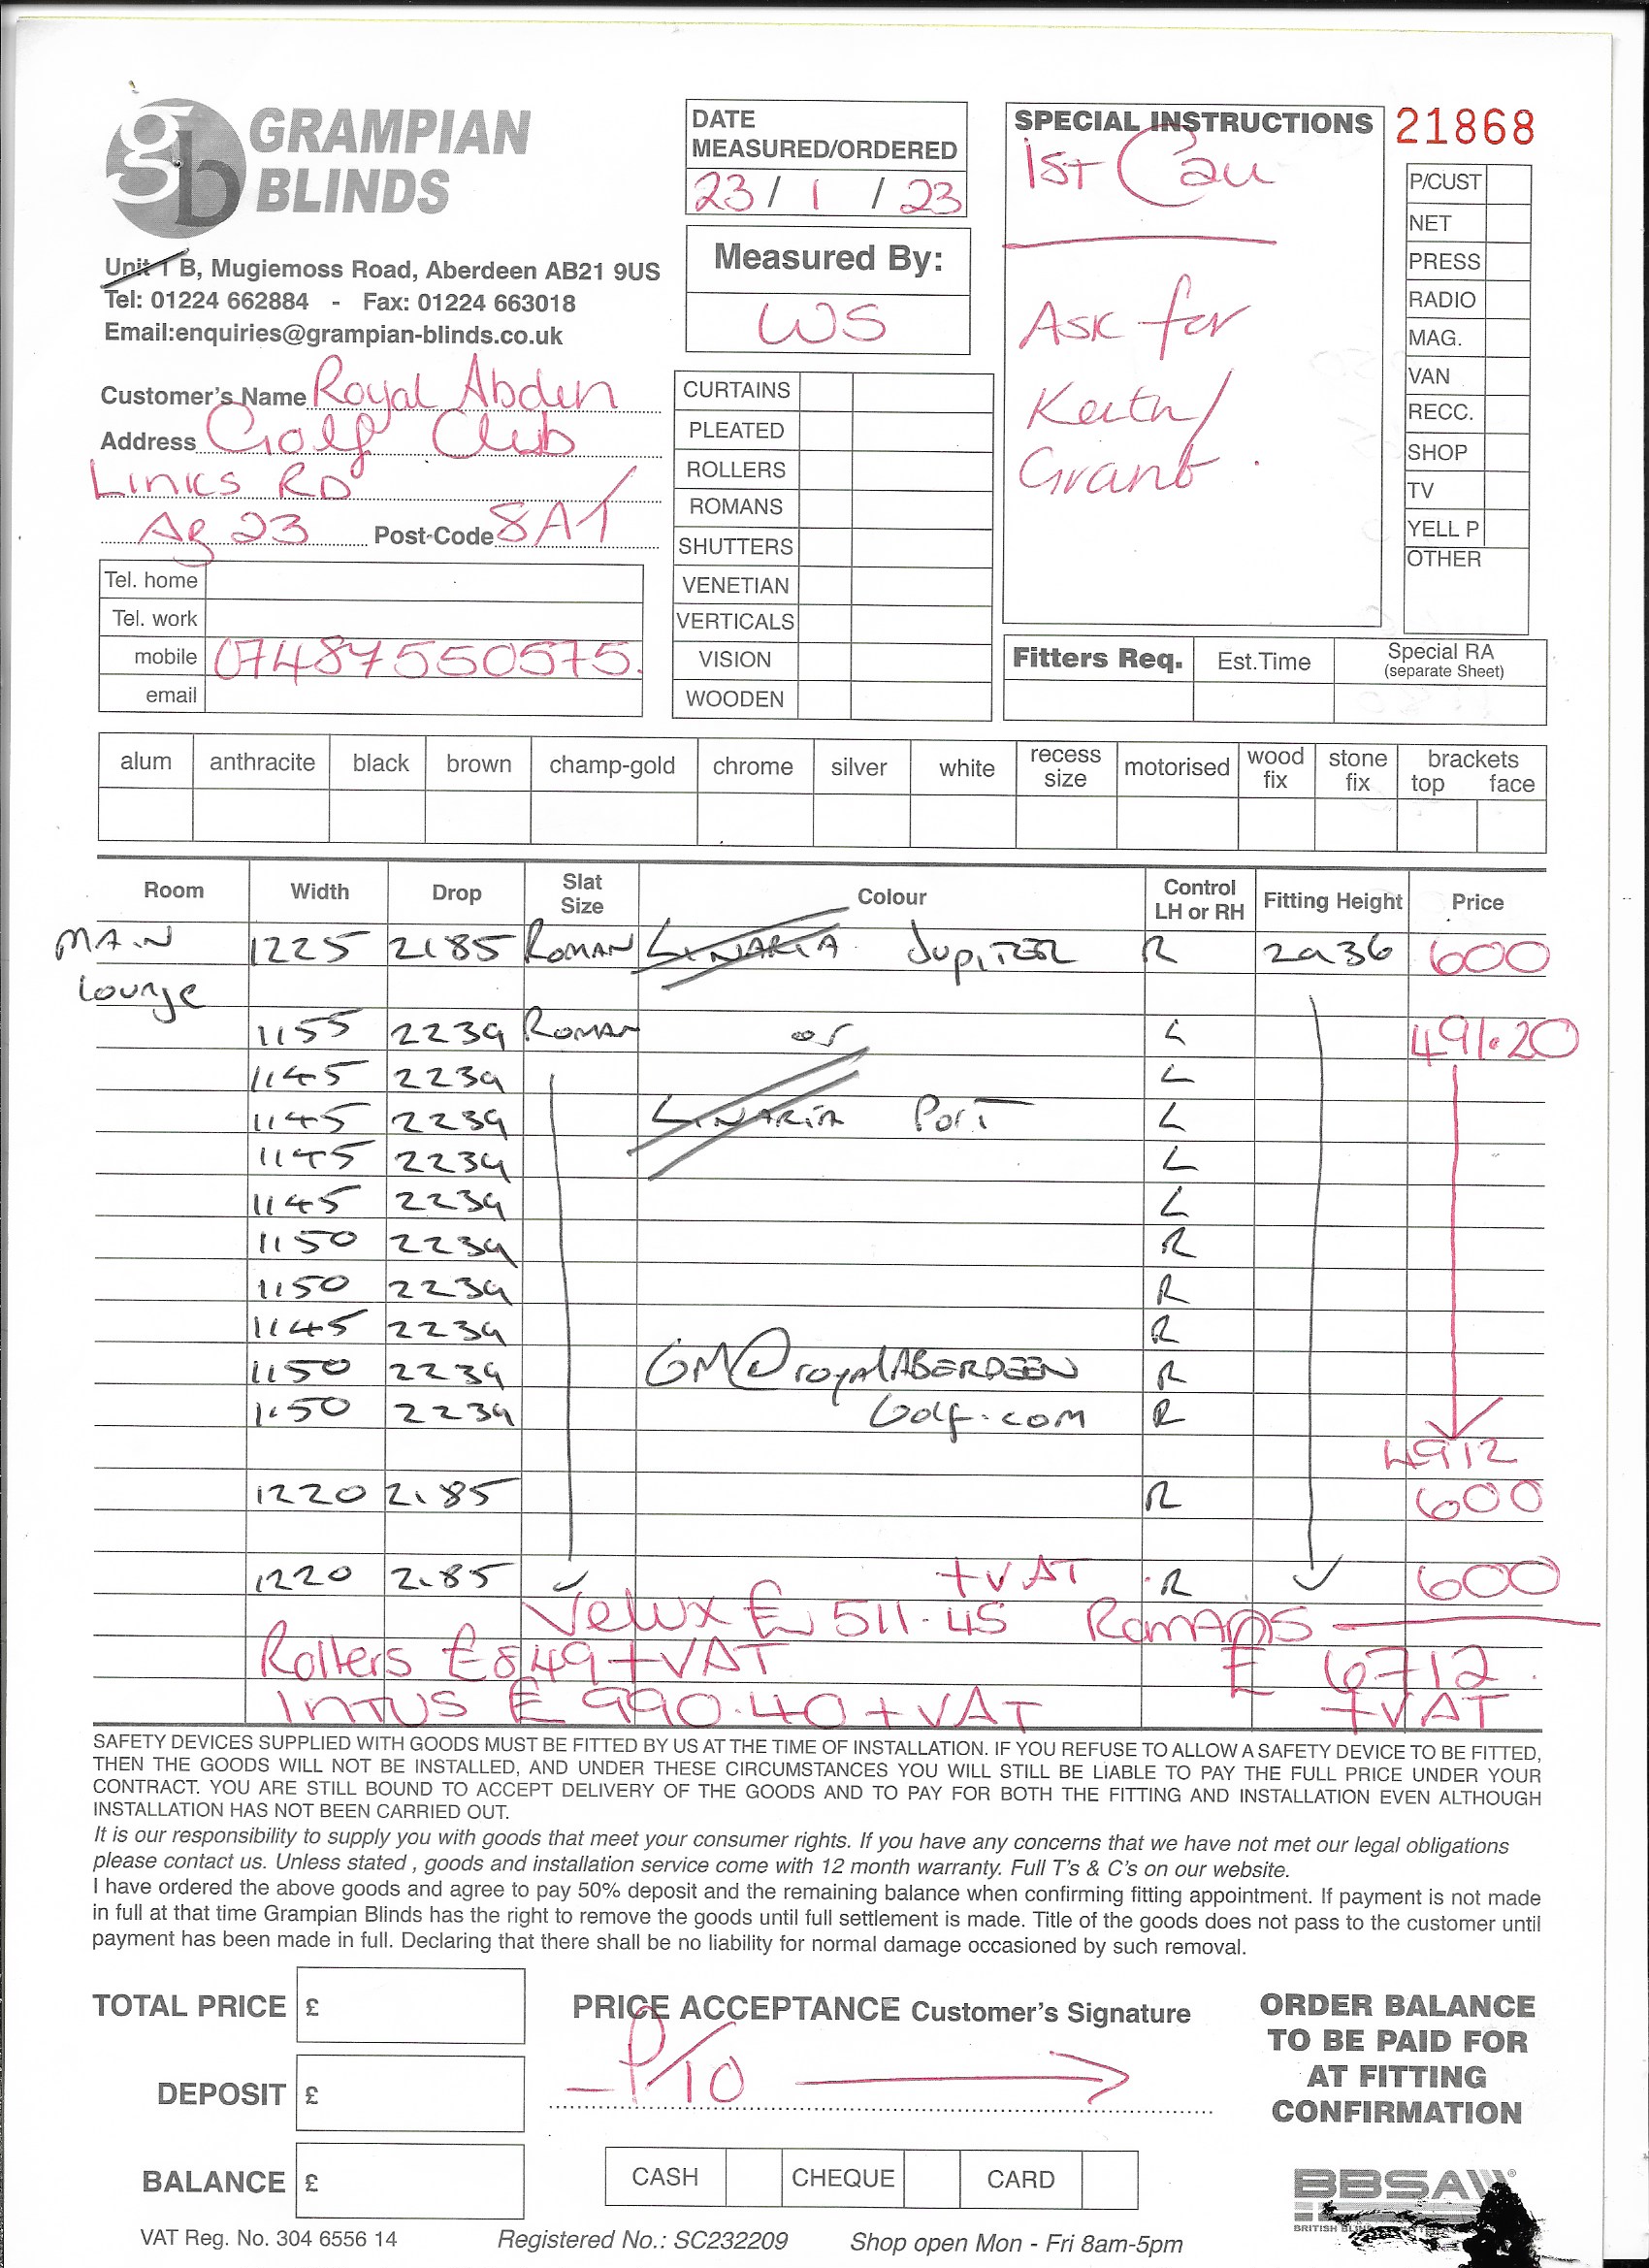 GRAMPIAN BLINDS
Unit 1 B, Mugiemoss Road, Aberdeen AB21 9US
Tel: 01224 662884 - Fax: 01224 663018
Email:enquiries@grampian-blinds.co.uk
DATE MEASURED/ORDERED
23 / 1 / 23
Measured By:
WS
SPECIAL INSTRUCTIONS
1st Call
Ask for
Keith/
Grant.
21868
P/CUST
NET
PRESS
RADIO
MAG.
VAN
RECC.
SHOP
TV
YELL P
OTHER
Customer's Name Royal Abden
Address Golf Club
Links RD
AB 23 Post-Code 8AT
Tel. home
Tel. work
mobile 07487550575.
email
CURTAINS
PLEATED
ROLLERS
ROMANS
SHUTTERS
VENETIAN
VERTICALS
VISION
WOODEN
Fitters Req. Est.Time Special RA (separate Sheet)
alum anthracite black brown champ-gold chrome silver white recess size motorised wood fix stone fix brackets top face
Room Width Drop Slat Size Colour Control LH or RH Fitting Height Price
MAIN 1225 2185 ROMAN LINARIA JUPITER R 2936 600
Lounge
1155 2239 ROMAN or L 491.20
1145 2239 L
1145 2239 LINARIA PORT L
1145 2239 L
1145 2239 L
1150 2239 R
1150 2239 R
1145 2239 R
1150 2239 GM@royalABERDEEN R
1150 2239 Golf.com R
4912
1220 2185 R 600
1220 2185 +VAT R 600
Velux £ 511.45 Romans
Rollers £849+VAT £ 6712.
INTUS £ 990.40+VAT +VAT
SAFETY DEVICES SUPPLIED WITH GOODS MUST BE FITTED BY US AT THE TIME OF INSTALLATION. IF YOU REFUSE TO ALLOW A SAFETY DEVICE TO BE FITTED,
THEN THE GOODS WILL NOT BE INSTALLED, AND UNDER THESE CIRCUMSTANCES YOU WILL STILL BE LIABLE TO PAY THE FULL PRICE UNDER YOUR
CONTRACT. YOU ARE STILL BOUND TO ACCEPT DELIVERY OF THE GOODS AND TO PAY FOR BOTH THE FITTING AND INSTALLATION EVEN ALTHOUGH
INSTALLATION HAS NOT BEEN CARRIED OUT.
It is our responsibility to supply you with goods that meet your consumer rights. If you have any concerns that we have not met our legal obligations
please contact us. Unless stated , goods and installation service come with 12 month warranty. Full T's & C's on our website.
I have ordered the above goods and agree to pay 50% deposit and the remaining balance when confirming fitting appointment. If payment is not made
in full at that time Grampian Blinds has the right to remove the goods until full settlement is made. Title of the goods does not pass to the customer until
payment has been made in full. Declaring that there shall be no liability for normal damage occasioned by such removal.
TOTAL PRICE £
DEPOSIT £
BALANCE £
PRICE ACCEPTANCE Customer's Signature
P/TO
CASH CHEQUE CARD
ORDER BALANCE
TO BE PAID FOR
AT FITTING
CONFIRMATION
BBSA
BRITISH
VAT Reg. No. 304 6556 14 Registered No.: SC232209 Shop open Mon - Fri 8am-5pm